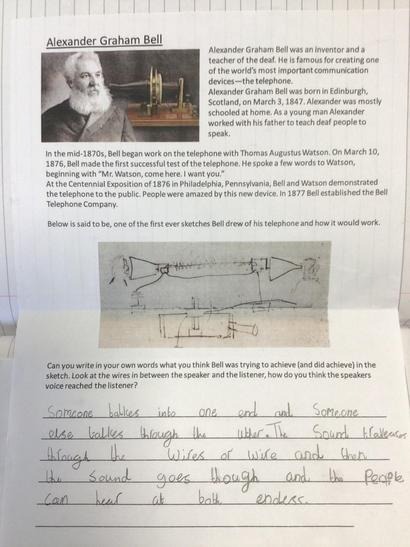 Alexander Graham Bell
Alexander Graham Bell was an inventor and a
teacher of the deaf. He is famous for creating one
of the world's most important communication
devices—the telephone.
Alexander Graham Bell was born in Edinburgh,
Scotland, on March 3, 1847. Alexander was mostly
schooled at home. As a young man Alexander
worked with his father to teach deaf people to
speak.
In the mid-1870s, Bell began work on the telephone with Thomas Augustus Watson. On March 10,
1876, Bell made the first successful test of the telephone. He spoke a few words to Watson,
beginning with "Mr. Watson, come here. I want you."
At the Centennial Exposition of 1876 in Philadelphia, Pennsylvania, Bell and Watson demonstrated
the telephone to the public. People were amazed by this new device. In 1877 Bell established the Bell
Telephone Company.
Below is said to be, one of the first ever sketches Bell drew of his telephone and how it would work.
Can you write in your own words what you think Bell was trying to achieve (and did achieve) in the
sketch. Look at the wires in between the speaker and the listener, how do you think the speakers
voice reached the listener?
Someone talkes into one end and Someone
else talkes through the uther. The Sound traveses
through the Wires or wire and then
the Sound goes though and the People
Can hear at both enders.